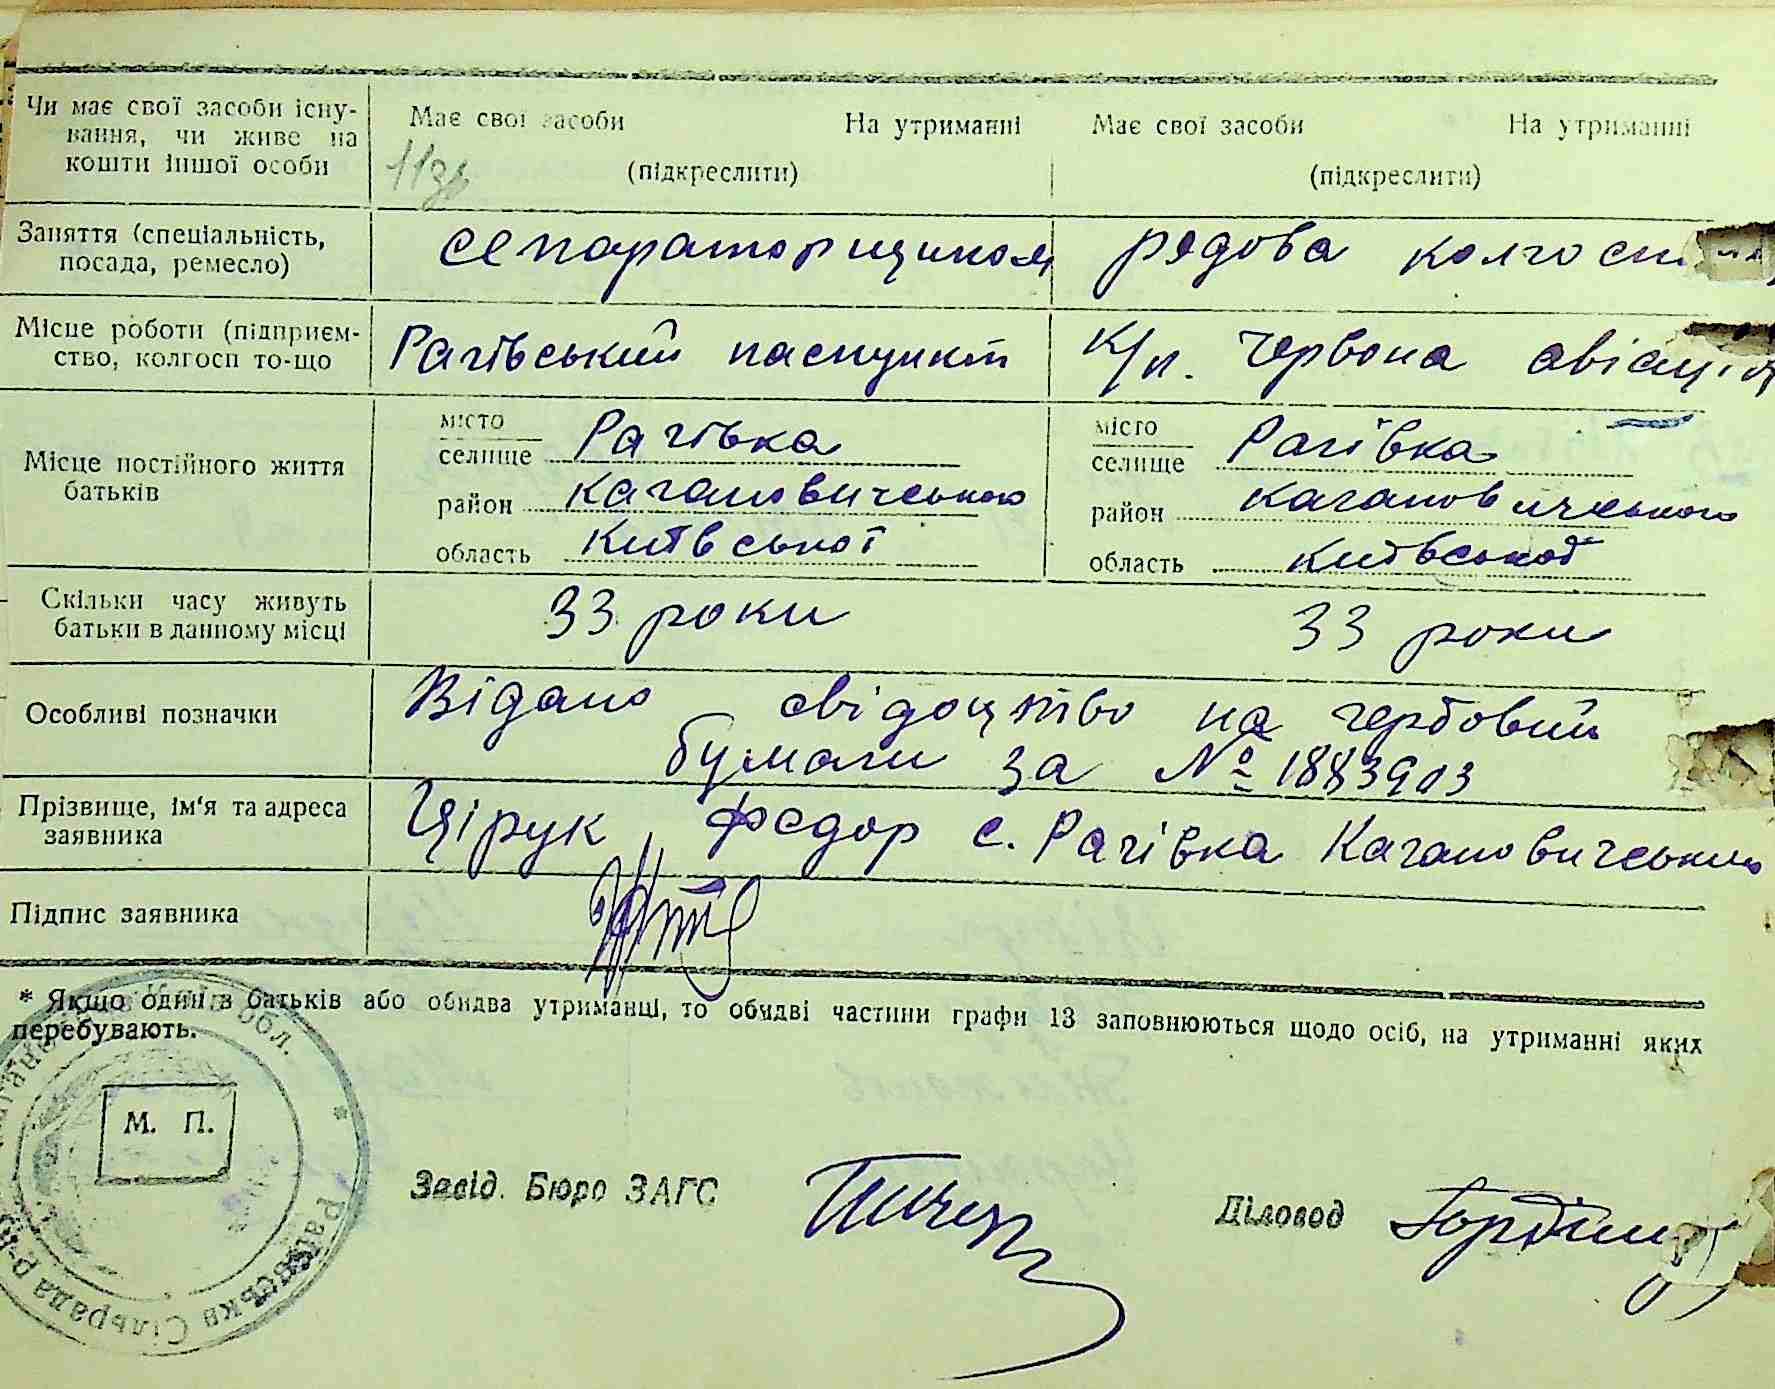 Чи має свої засоби існу-
вання, чи живе на
кошти іншої особи
Має свої засоби На утриманні
(підкреслити)
Має свої засоби На утриманні
(підкреслити)
Заняття (спеціальність,
посада, ремесло)
сепараторщиком
рядова
Місце роботи (підприєм-
ство, колгосп то-що
Рагівський
к/п. червона авіація
Місце постійного життя
батьків
місто
селище Рагівка
район Кагановичського
область Київської
місто
селище Рагівка
район Кагановичського
область Київської
Скільки часу живуть
батьки в данному місці
33 роки
33 роки
Особливі позначки
Відано свідоцтво на гербовий
бумаги за № 1883903
Прізвище, ім'я та адреса
заявника
Цірук Федор с. Рагівка Кагановичський
Підпис заявника
* Якщо один з батьків або обидва утриманці, то обидві частини графи 13 заповнюються щодо осіб, на утриманні яких
перебувають.
М. П.
обл. * Рагівська Сільрада
Завід. Бюро ЗАГС
Діловод